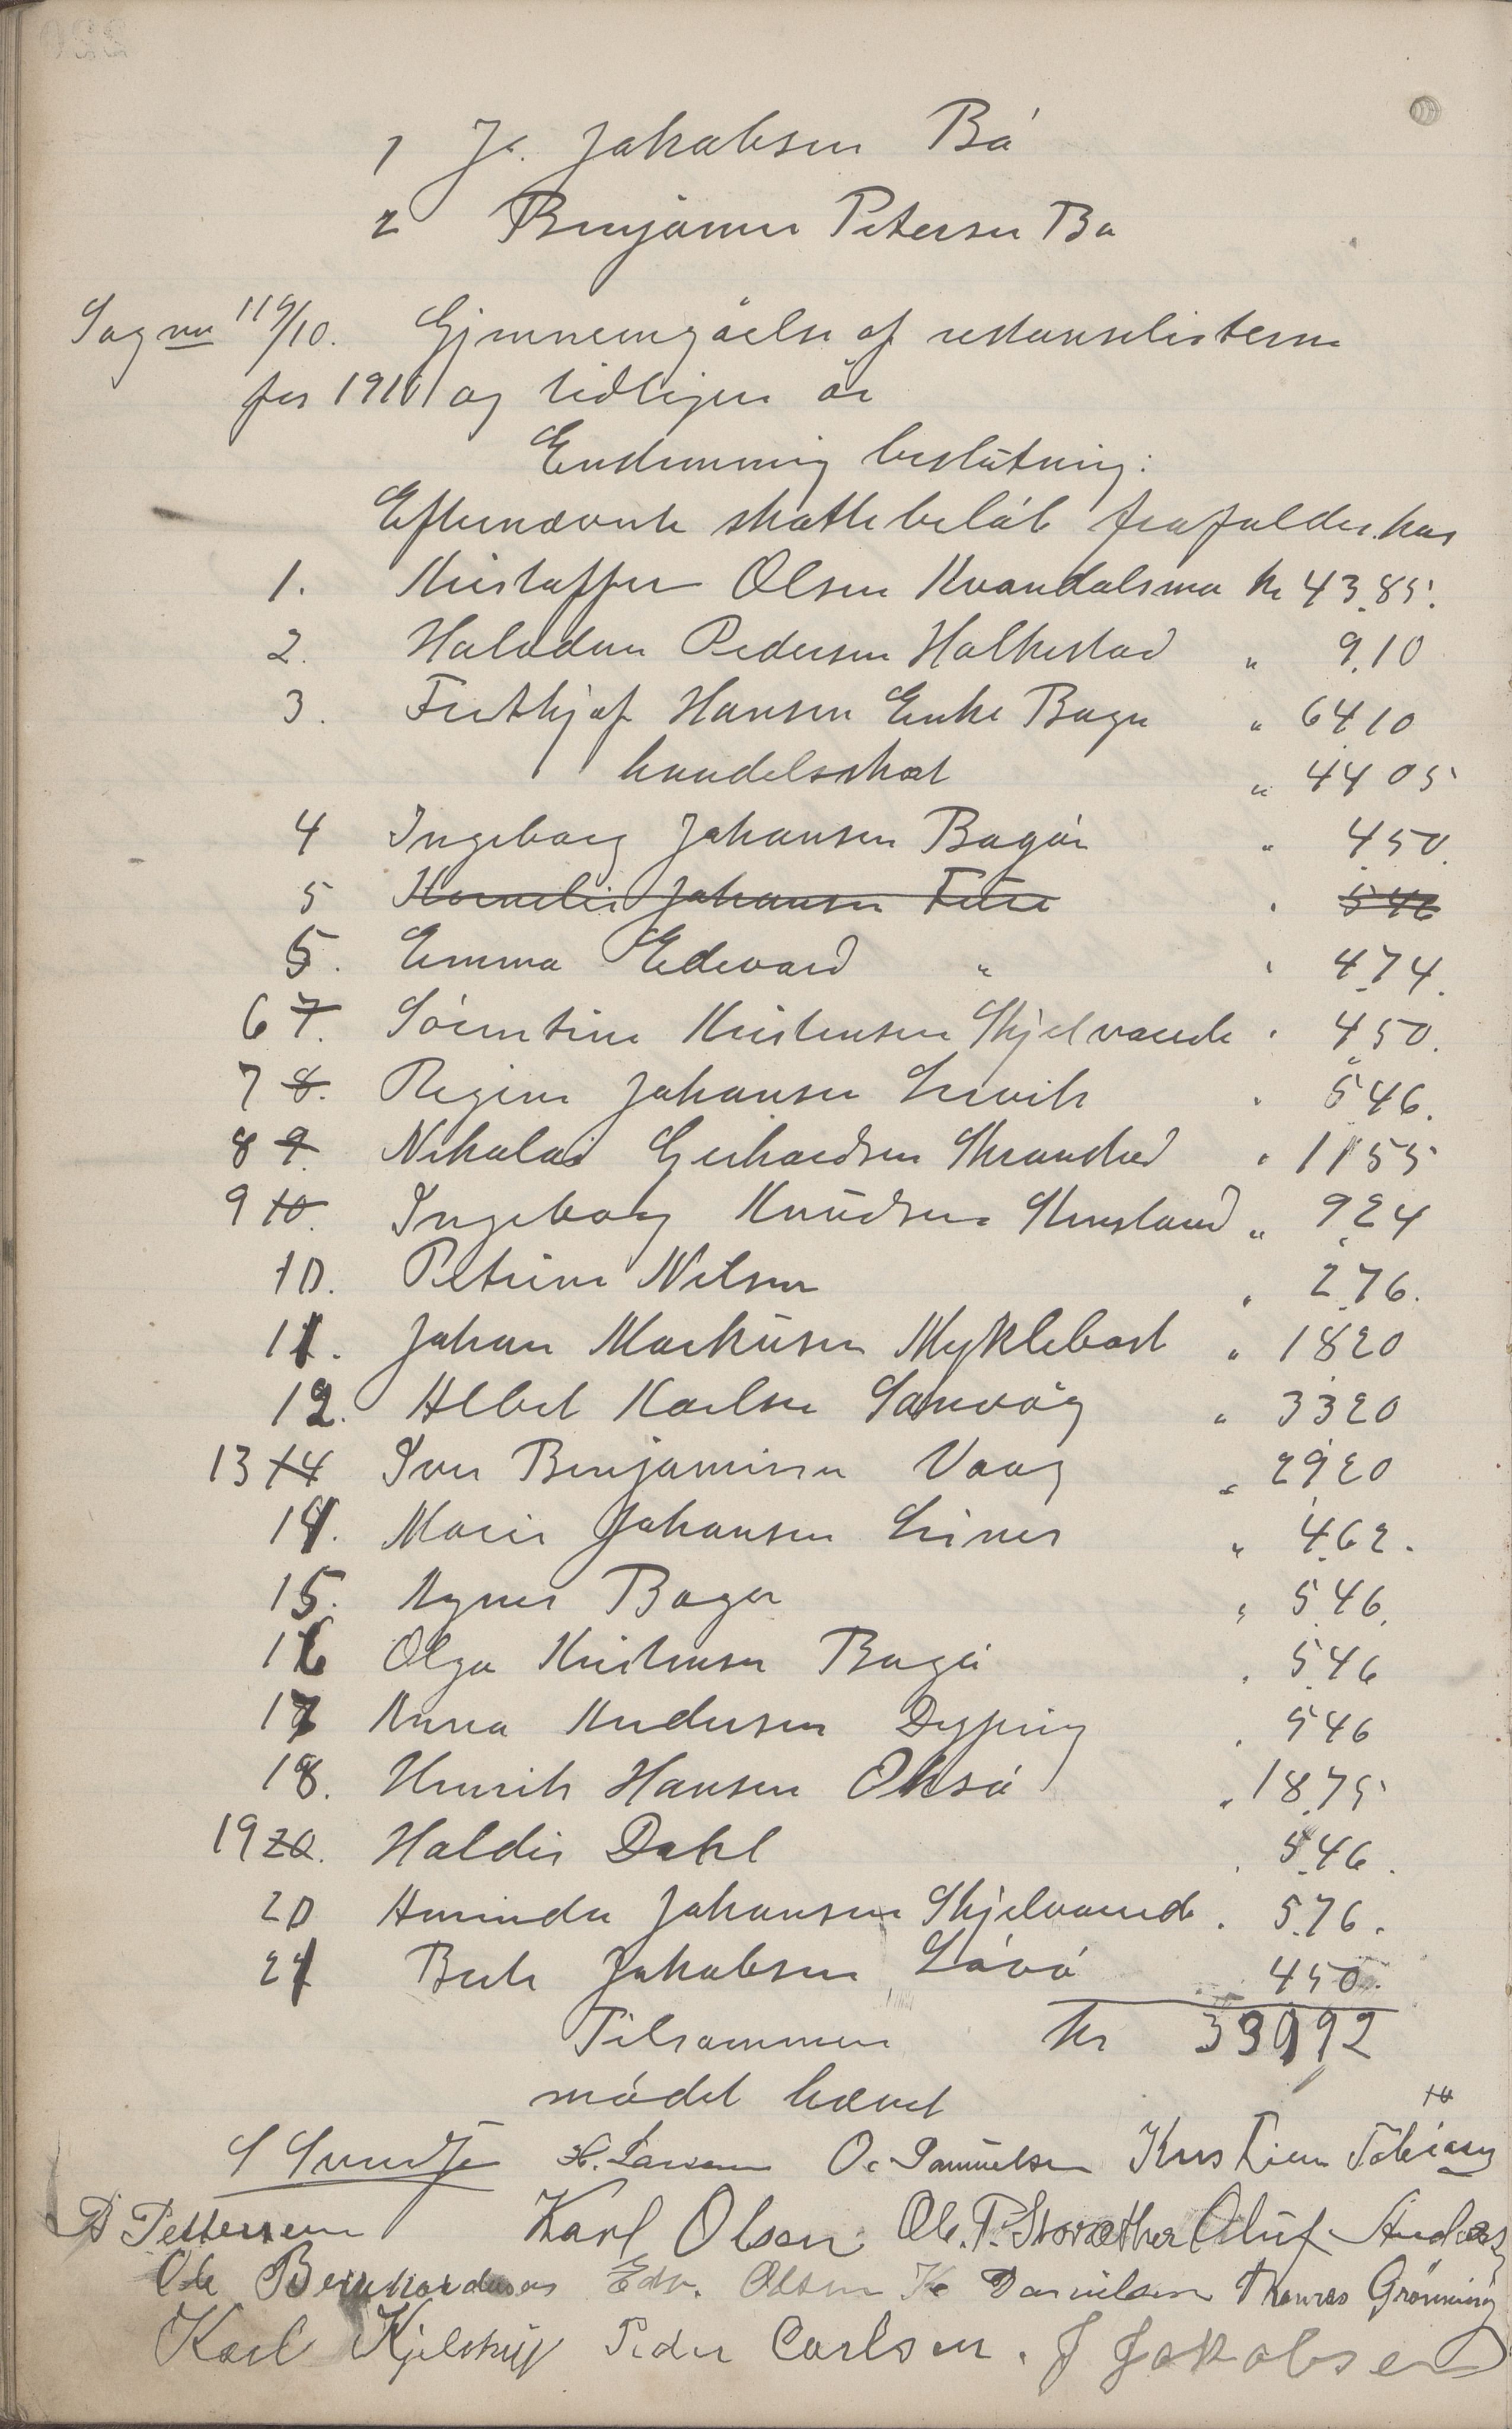 1 Jc. Jakobsen Bö
2 Benjamin Petersen Bö
Sag no 119/10. Gjennemgåelse af restanselisterne
for 1910 og tidligere år
Enstemmig beslutning:
Efternævnte skattebelöb frafaldes hos
1. Kristoffer Olsen Kvandalsmo kr 43.85.
2. Halvdan Pedersen Halkestad " 9.10
3. Fritkjof Hansen Enke Bogn " 64.10
handelsskat " 44.05
4 Ingeborg Johansen Bogön " 4.50.
5 Kornelie Johansen Fure " 5.46
5. Emma Edevard " " 4.74.
6 7. Sörentine Kristensen Skjelvareide " 4.50.
7 8. Regine Johansen Leivik " 5.46.
8 9. Nikolai Gerhardsen Skranstad " 11.55
9 10. Ingeborg Knudsen Stensland " 9.24
10. Petrine Nilsen " 2.76.
11. Johan Markusen Myklebost " 18.20
12. Albert Karlsen Sanvåg " 33.20
13 14 Iver Benjaminsen Vaag " 29.20
14. Marie Johansen Leines " 4.62.
15. Agnes Bogen " 5.46.
16 Olga Kristensen Bogö " 5.46
17 Anna Andersen Dyping " 5.46
18. Henrik Hansen Oksö " 18.75
19 20. Haldis Dahl " 5.46.
20 Aminda Johansen Skjelvareide " 5.76.
21 Berte Jakobsen Lövö 4.50.
Tilsammen kr 339.92
mödet hævet
S Sundfør H. Larsen O. Samuelsen Kristian Tobiasen
P Pettersen Karl Olsen. Ole. T. Storæther Oluf Anders
Ole Bernhardsen Edv. Olsen K Danielsen Thomas Grønning
Karl Kjelstrup Peder Carlsen. J Jakobsen